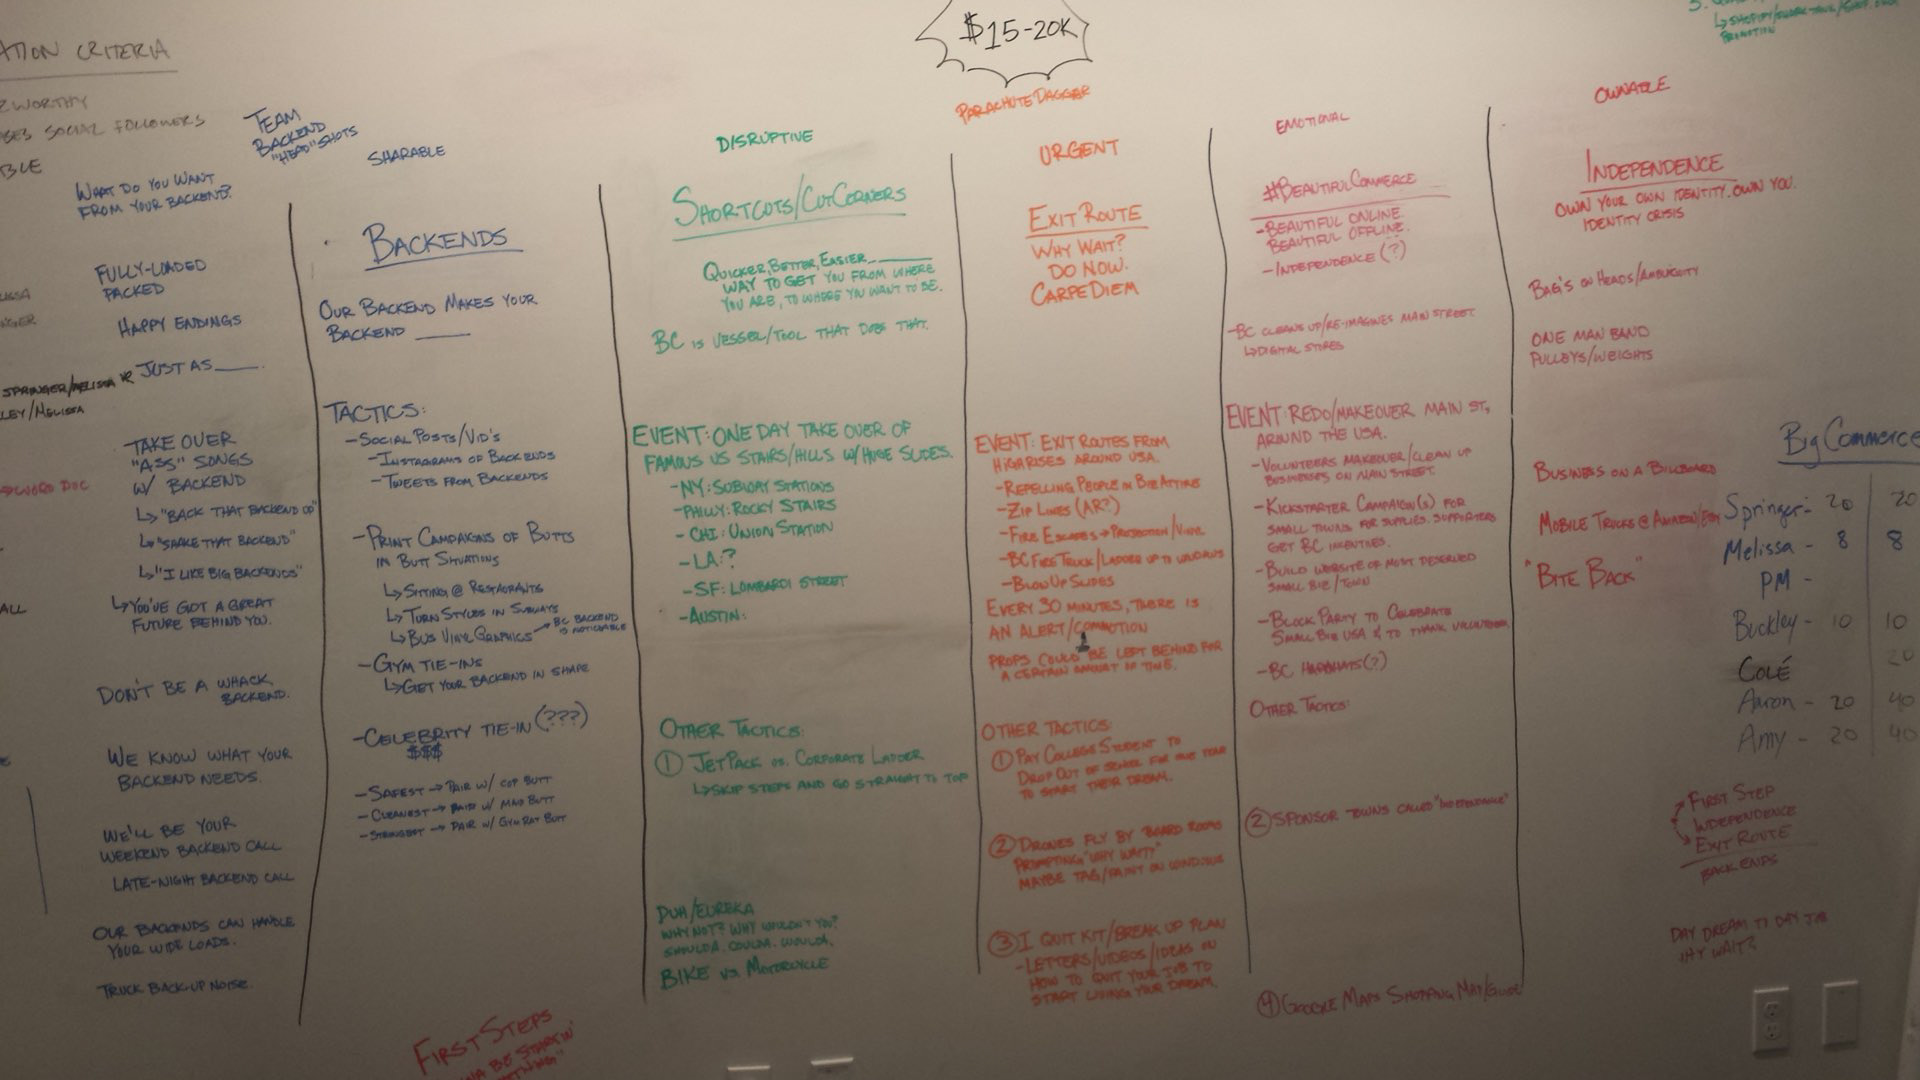 $15-20K
ATION CRITERIA
WORTHY
SOCIAL FOLLOWERS
SPRINGER/MELISSA
LEY/MELISSA
WORD DOC
ALL
TEAM
BACKEND
"HEAD" SHOTS
WHAT DO YOU WANT
FROM YOUR BACKEND?
FULLY-LOADED
PACKED
HAPPY ENDINGS
JUST AS ____.
TAKE OVER
"ASS" SONGS
W/ BACKEND
↳ "BACK THAT BACKEND UP"
↳ "SHAKE THAT BACKEND"
↳ "I LIKE BIG BACKENDS"
↳ YOU'VE GOT A GREAT
FUTURE BEHIND YOU.
DON'T BE A WHACK
BACKEND.
WE KNOW WHAT YOUR
BACKEND NEEDS.
WE'LL BE YOUR
WEEKEND BACKEND CALL
LATE-NIGHT BACKEND CALL
OUR BACKENDS CAN HANDLE
YOUR WIDE LOADS.
TRUCK BACK-UP NOISE.
SHARABLE
BACKENDS
OUR BACKEND MAKES YOUR
BACKEND ____
TACTICS:
-SOCIAL POSTS/VID'S
-INSTAGRAMS OF BACKENDS
-TWEETS FROM BACKENDS
-PRINT CAMPAIGNS OF BUTTS
IN BUTT SITUATIONS
↳ SITTING @ RESTAURANTS
↳ TURN STYLES IN SUBWAYS
↳ BUS VINYL GRAPHICS → BC BACKEND
IS NOTICEABLE
-GYM TIE-INS
↳ GET YOUR BACKEND IN SHAPE
-CELEBRITY TIE-IN (???)
$$$
-SAFEST → PAIR W/ COP BUTT
-CLEANEST → PAIR W/ MAID BUTT
-STRONGEST → PAIR W/ GYM RAT BUTT
FIRST STEPS
DISRUPTIVE
SHORTCUTS/CUT CORNERS
QUICKER, BETTER, EASIER ____
WAY TO GET YOU FROM WHERE
YOU ARE, TO WHERE YOU WANT TO BE.
BC IS VESSEL/TOOL THAT DOES THAT.
EVENT: ONE DAY TAKE OVER OF
FAMOUS US STAIRS/HILLS W/ HUGE SLIDES.
-NY: SUBWAY STATIONS
-PHILLY: ROCKY STAIRS
-CHI: UNION STATION
-LA: ?
-SF: LOMBARDI STREET
-AUSTIN:
OTHER TACTICS:
① JETPACK VS. CORPORATE LADDER
↳ SKIP STEPS AND GO STRAIGHT TO TOP
DUH/EUREKA
WHY NOT? WHY WOULDN'T YOU?
SHOULDA. COULDA. WOULDA.
BIKE VS. MOTORCYCLE
PARACHUTE DAGGER
URGENT
EXIT ROUTE
WHY WAIT?
DO NOW.
CARPE DIEM
EVENT: EXIT ROUTES FROM
HIGHRISES AROUND USA.
-REPELLING PEOPLE IN BIZ ATTIRE
-ZIP LINES (AR?)
-FIRE ESCAPES → PROJECTION/VINYL
-BC FIRE TRUCK/LADDER UP TO WINDOWS
-BLOW UP SLIDES
EVERY 30 MINUTES, THERE IS
AN ALERT/COMMOTION
PROPS COULD BE LEFT BEHIND FOR
A CERTAIN AMOUNT OF TIME.
OTHER TACTICS:
① PAY COLLEGE STUDENT TO
DROP OUT OF SCHOOL FOR ONE YEAR
TO START THEIR DREAM.
② DRONES FLY BY BOARD ROOMS
PROMPTING "WHY WAIT?"
MAYBE TAG/PAINT ON WINDOWS
③ I QUIT KIT/BREAK UP PLAN
-LETTERS/VIDEOS/IDEAS ON
HOW TO QUIT YOUR JOB TO
START LIVING YOUR DREAM.
EMOTIONAL
#BEAUTIFULCOMMERCE
-BEAUTIFUL ONLINE.
BEAUTIFUL OFFLINE.
-INDEPENDENCE (?)
-BC CLEANS UP/RE-IMAGINES MAIN STREET.
↳ DIGITAL STORES
EVENT: REDO/MAKEOVER MAIN ST,
AROUND THE USA.
-VOLUNTEERS MAKEOVER/CLEAN UP
BUSINESSES ON MAIN STREET.
-KICKSTARTER CAMPAIGN(S) FOR
SMALL TOWNS FOR SUPPLIES. SUPPORTERS
GET BC INCENTIVES.
-BUILD WEBSITE OF MOST DESERVED
SMALL BIZ/TOWN
-BLOCK PARTY TO CELEBRATE
SMALL BIZ USA & TO THANK VOLUNTEERS.
-BC HARDHATS (?)
OTHER TACTICS:
② SPONSOR TOWNS CALLED "INDEPENDANCE"
④ GOOGLE MAPS SHOPPING MAP/GUIDE
OWNABLE
INDEPENDENCE
OWN YOUR OWN IDENTITY. OWN YOU.
IDENTITY CRISIS
BAG'S ON HEADS/AMBIGUITY
ONE MAN BAND
PULLEYS/WEIGHTS
BUSINESS ON A BILLBOARD
MOBILE TRUCKS @ AMAZON/EBAY
"BITE BACK"
PROMOTION
BigCommerce
Springer- 20 20
Melissa - 8 8
PM -
Buckley - 10 10
Colé 20
Aaron - 20 40
Amy - 20 40
FIRST STEP
INDEPENDENCE
EXIT ROUTE
BACKENDS
DAY DREAM TO DAY JOB